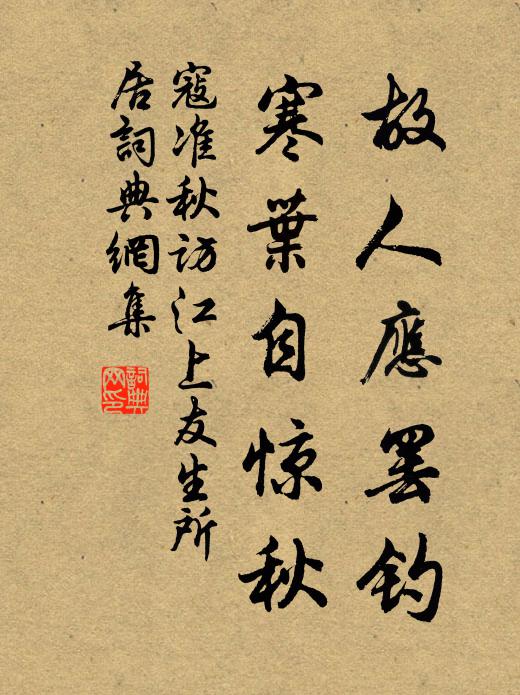 故人應罷钓
寒葉自惊秋
寇准秋访江上友生所
居詞典網集
詞典
网印